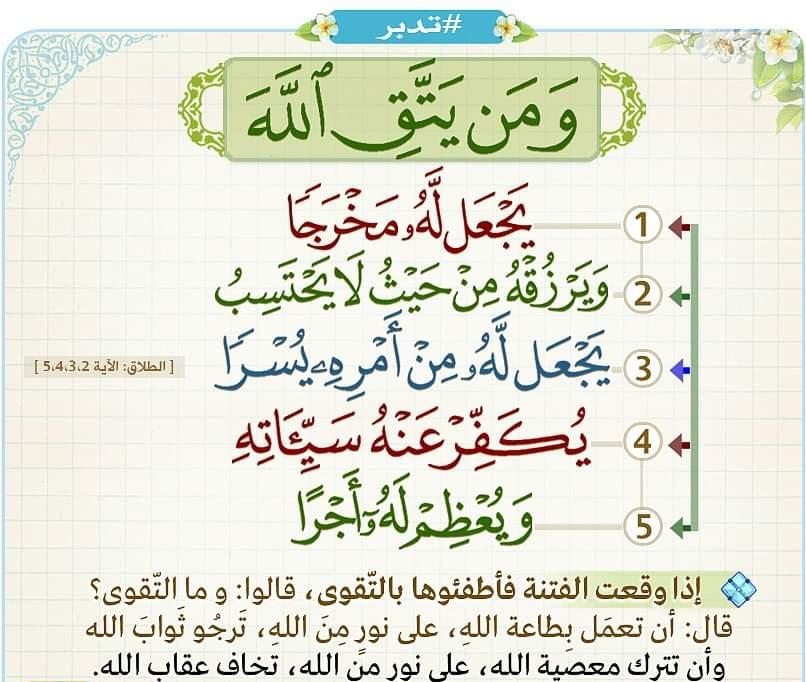 #تدبر
وَمَن يَتَّقِ ٱللَّهَ
1 يَجْعَل لَّهُۥ مَخْرَجًا
2 وَيَرْزُقْهُ مِنْ حَيْثُ لَا يَحْتَسِبُ
3 يَجْعَل لَّهُۥ مِنْ أَمْرِهِۦ يُسْرًا
[ الطلاق: الآية 5،4،3،2 ]
4 يُكَفِّرْ عَنْهُ سَيِّـَٔاتِهِ
5 وَيُعْظِمْ لَهُۥٓ أَجْرًا
إذا وقعت الفتنة فأطفئوها بالتّقوى، قالوا: و ما التّقوى؟
قال: أن تعمَل بِطاعة اللهِ، على نورٍ مِنَ اللهِ، تَرجُو ثَوابَ الله
وأن تترك معصية الله، على نور من الله، تخاف عقاب الله.